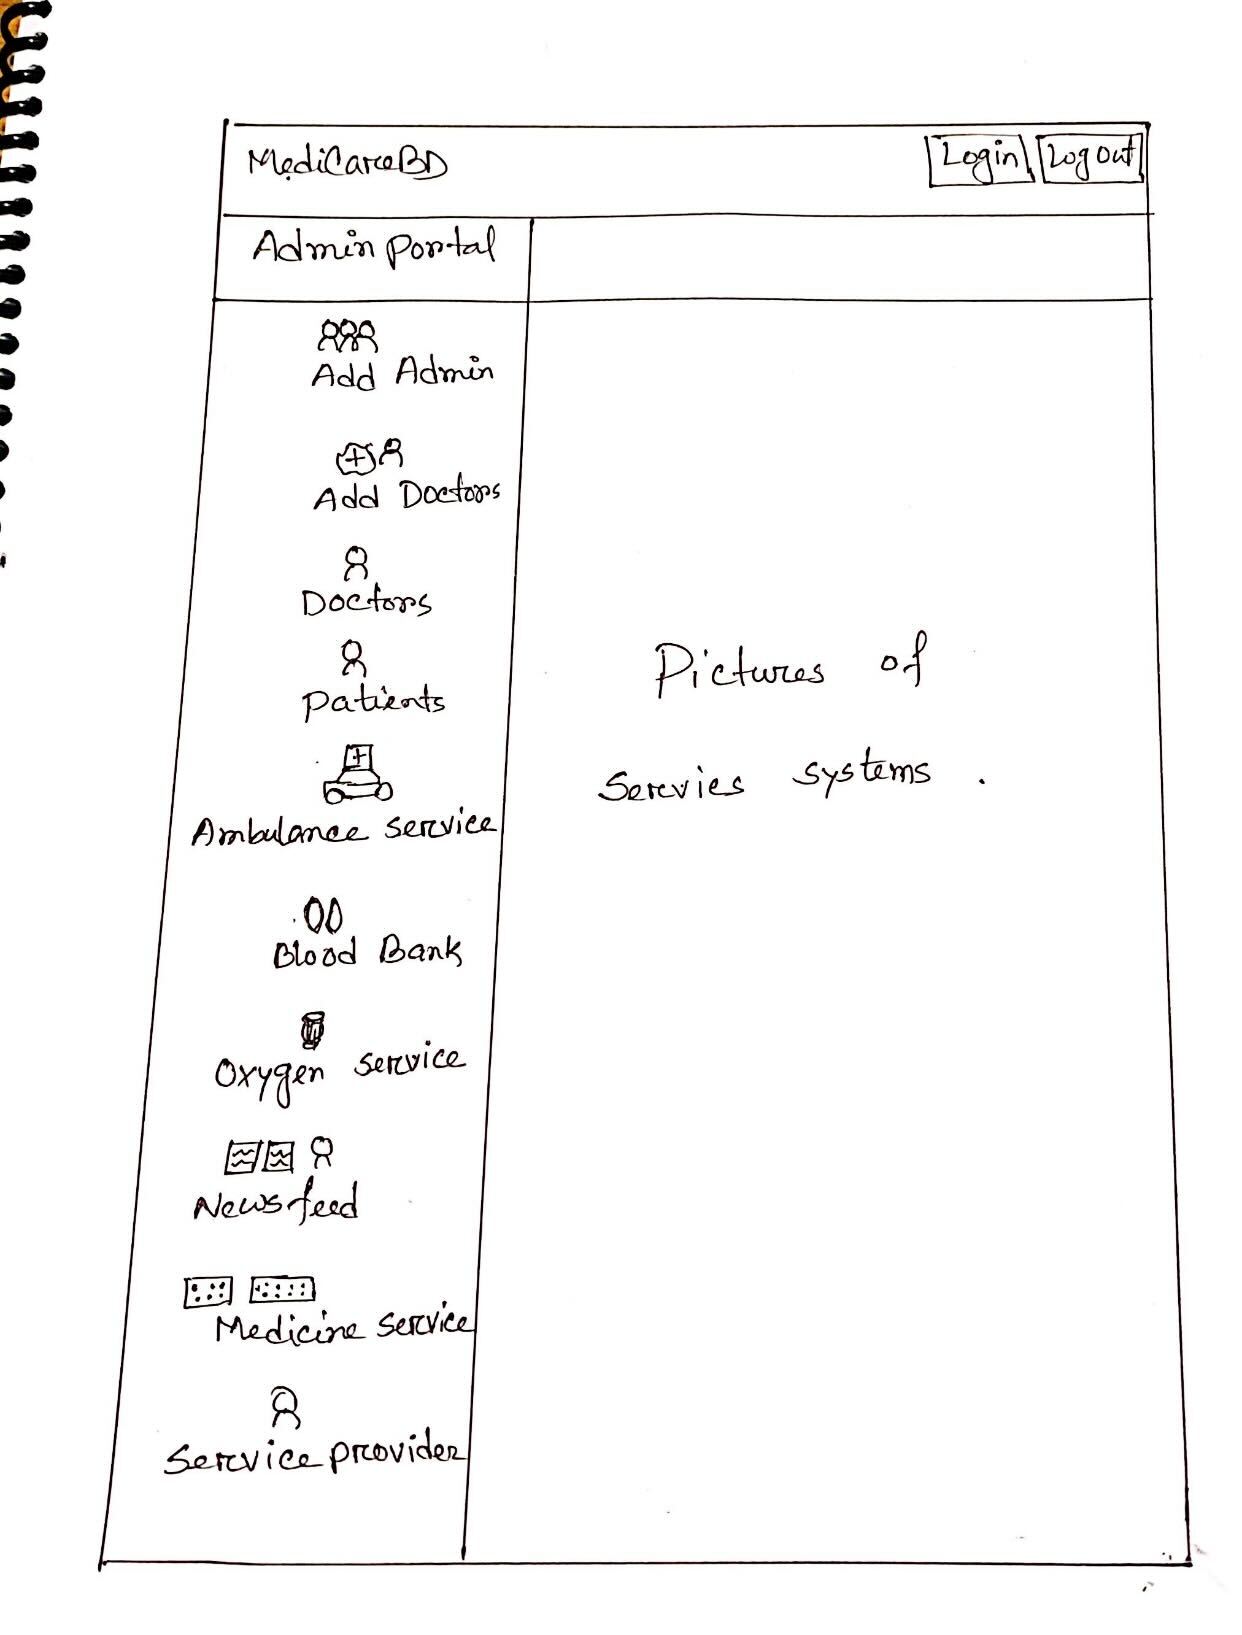 MediCareBD
Login
Log out
Admin portal
Add Admin
Add Doctors
Doctors
Patients
Ambulance service
Blood Bank
Oxygen service
Newsfeed
Medicine service
Service provider
Pictures of
Servies systems.